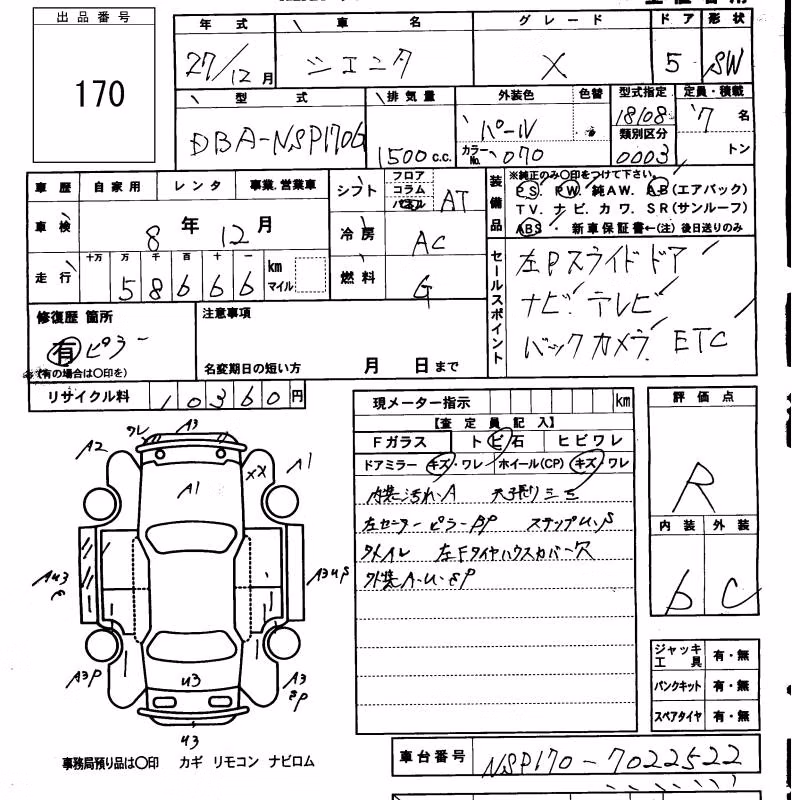 出品番号
170
年式 車名 グレード ドア 形状
27/12月 シエンタ X 5 SW
型式 排気量 外装色 色替 型式指定 定員・積載
DBA-NSP170G 1500c.c. パール 18108 7名
カラーNo. 070 類別区分 0003 トン
車歴 自家用 レンタ 事業.営業車
車検 8年 12月
走行 十万 万 千 百 十 一
58666 km マイル
シフト フロア コラム AT
冷房 AC
燃料 G
装備品
※純正のみ〇印をつけて下さい。
PS. PW. 純AW. AB(エアバック)
TV. ナビ. カワ. SR(サンルーフ)
ABS ・ 新車保証書←(注) 後日送りのみ
セールスポイント
左Pスライドドア
ナビ. テレビ
バックカメラ. ETC
修復歴 箇所
有 ピラー
(有の場合は〇印を)
注意事項
名変期日の短い方 月 日まで
リサイクル料 10360円
現メーター指示 km
【査定員記入】
Fガラス トビ石 ヒビワレ
ドアミラー キズ・ワレ ホイール(CP) キズ ワレ
内装汚れ.A 天張りシミ
左センターピラーBP ステップU.S
タイレ 左Fタイヤハウスカバー穴
外装A.U.SP
評価点
R
内装 外装
b C
ジャッキ工具 有・無
パンクキット 有・無
スペアタイヤ 有・無
ワレ A3
A2 XX A1
A1
AU3 P A3US
A3P U3 A3 SP
U3
事務局預り品は〇印 カギ リモコン ナビロム
車台番号 NSP170-7022522